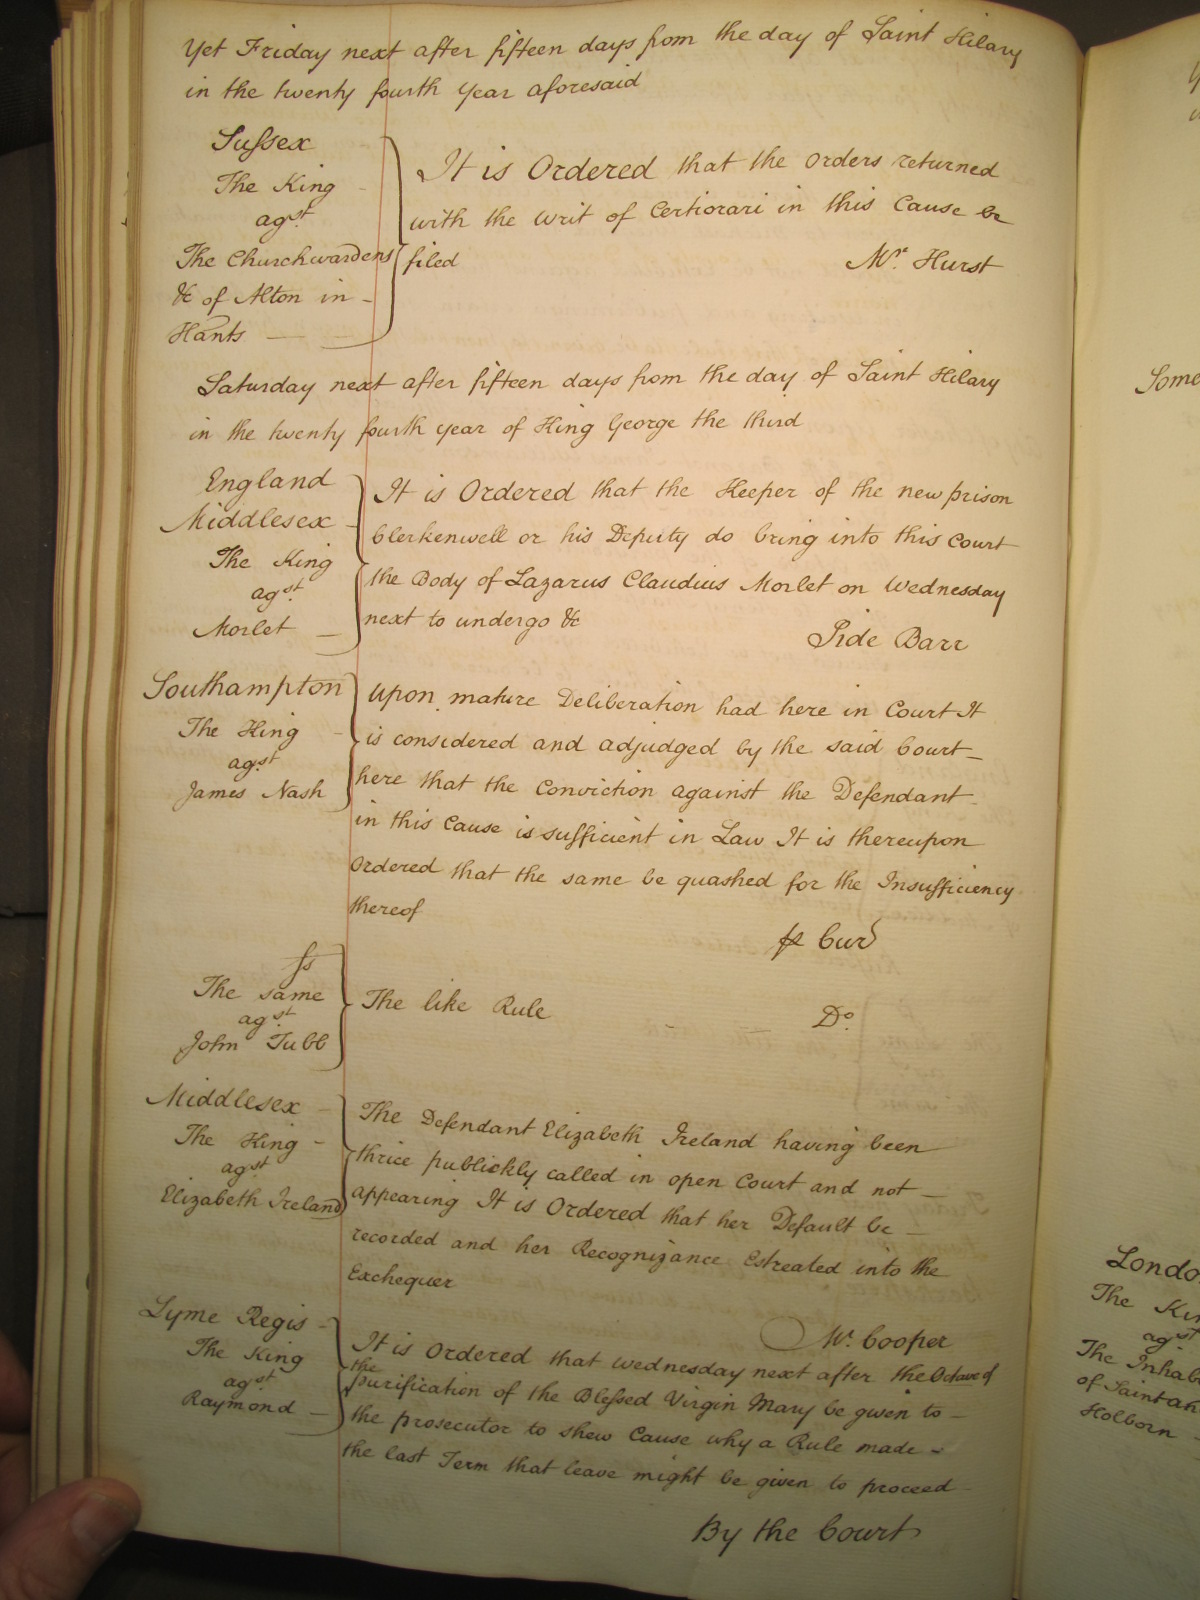 Yet Friday next after fifteen days from the day of Saint Hilary
in the twenty fourth year aforesaid
Sussex
The King
agst.
The Churchwardens
&c of Alton in
Hants
It is Ordered that the orders returned
with the writ of Certiorari in this Cause be
filed
Mr. Hurst
Saturday next after fifteen days from the day of Saint Hilary
in the twenty fourth year of King George the third
England
Middlesex
The King
agst.
Morlet
It is Ordered that the Keeper of the new prison
Clerkenwell or his Deputy do bring into this Court
the Body of Lazarus Claudius Morlet on Wednesday
next to undergo &c
Side Barr
Southampton
The King
agst.
James Nash
Upon mature Deliberation had here in Court It
is considered and adjudged by the said Court
here that the Conviction against the Defendant
in this Cause is sufficient in Law It is thereupon
Ordered that the same be quashed for the Insufficiency
thereof
p Cur
ss
The same
agst.
John Tubb
The like Rule
Do.
Middlesex
The King
agst.
Elizabeth Ireland
The Defendant Elizabeth Ireland having been
thrice publickly called in open Court and not
appearing It is Ordered that her Default be
recorded and her Recognizance Estreated into the
Exchequer
Mr. Cooper
Lyme Regis
The King
agst.
Raymond
It is Ordered that Wednesday next after the Octave of
the
purification of the Blessed Virgin Mary be given to
the prosecutor to shew Cause why a Rule made
the last Term that leave might be given to proceed
By the Court
Some
Londo
The Kin
agst.
The Inhab
of Saint an
Holborn